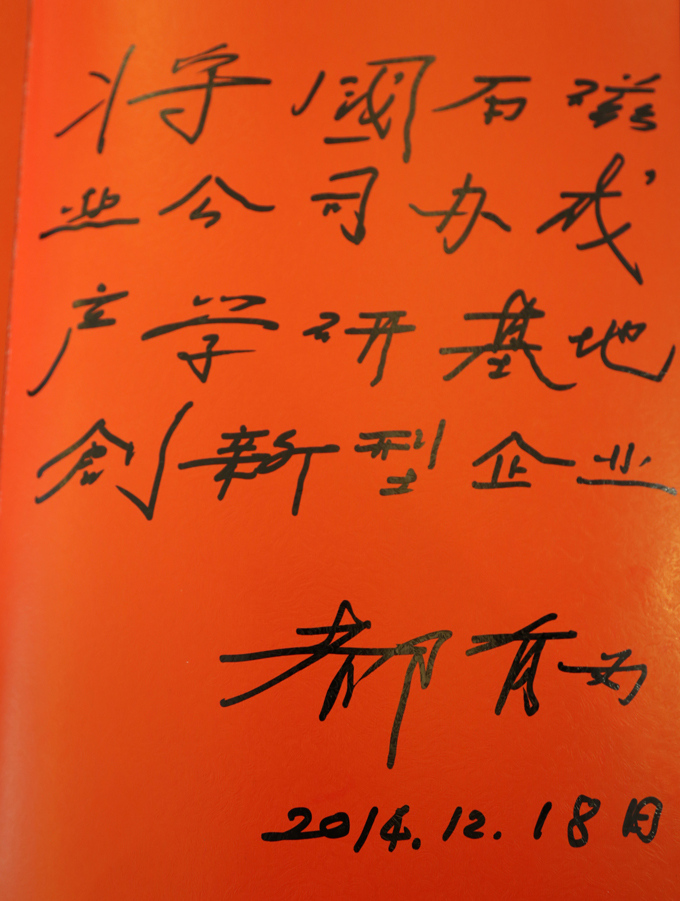 将國石磁
业公司办成
产学研基地
创新型企业
都有为
2014.12.18日